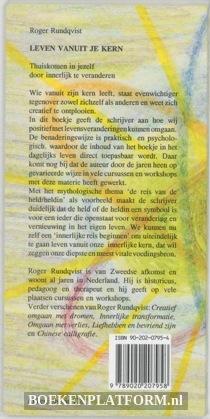 Roger Rundqvist
LEVEN VANUIT JE KERN
Thuiskomen in jezelf
door innerlijk te veranderen
Wie vanuit zijn kern leeft, staat evenwichtiger
tegenover zowel zichzelf als anderen en weet zich
creatief te ontplooien.
In dit boekje geeft de schrijver aan hoe wij
positief met levensveranderingen kunnen omgaan.
De benaderingswijze is praktisch- en psycholo-
gisch, waardoor de inhoud van het boekje in het
dagelijks leven direct toepasbaar wordt. Daar
komt nog bij dat de auteur door de jaren heen op
gevarieerde wijze in vele cursussen en workshops
met deze materie heeft gewerkt.
Met het mythologische thema 'de reis van de
held/heldin' als voorbeeld maakt de schrijver
duidelijk dat de held of de heldin een symbool is
voor een ieder die openstaat voor verandering en
vernieuwing in het eigen leven. We kunnen nu
zelf een 'innerlijke reis beginnen' om uiteindelijk
te gaan leven vanuit onze innerlijke kern, dat wil
zeggen onze diepste en meest vitale voedingsbron.
Roger Rundqvist is van Zweedse afkomst en
woont al jaren in Nederland. Hij is historicus,
pedagoog en therapeut en hij geeft op vele
plaatsen cursussen en workshops.
Verder verschenen van Roger Rundqvist: Creatief
omgaan met dromen, Innerlijke transformatie,
Omgaan met verlies, Liefhebben en bevriend zijn
en Chinese kalligrafie.
ISBN 90-202-0795-4
9 789020 207958
BOEKENPLATFORM.nl